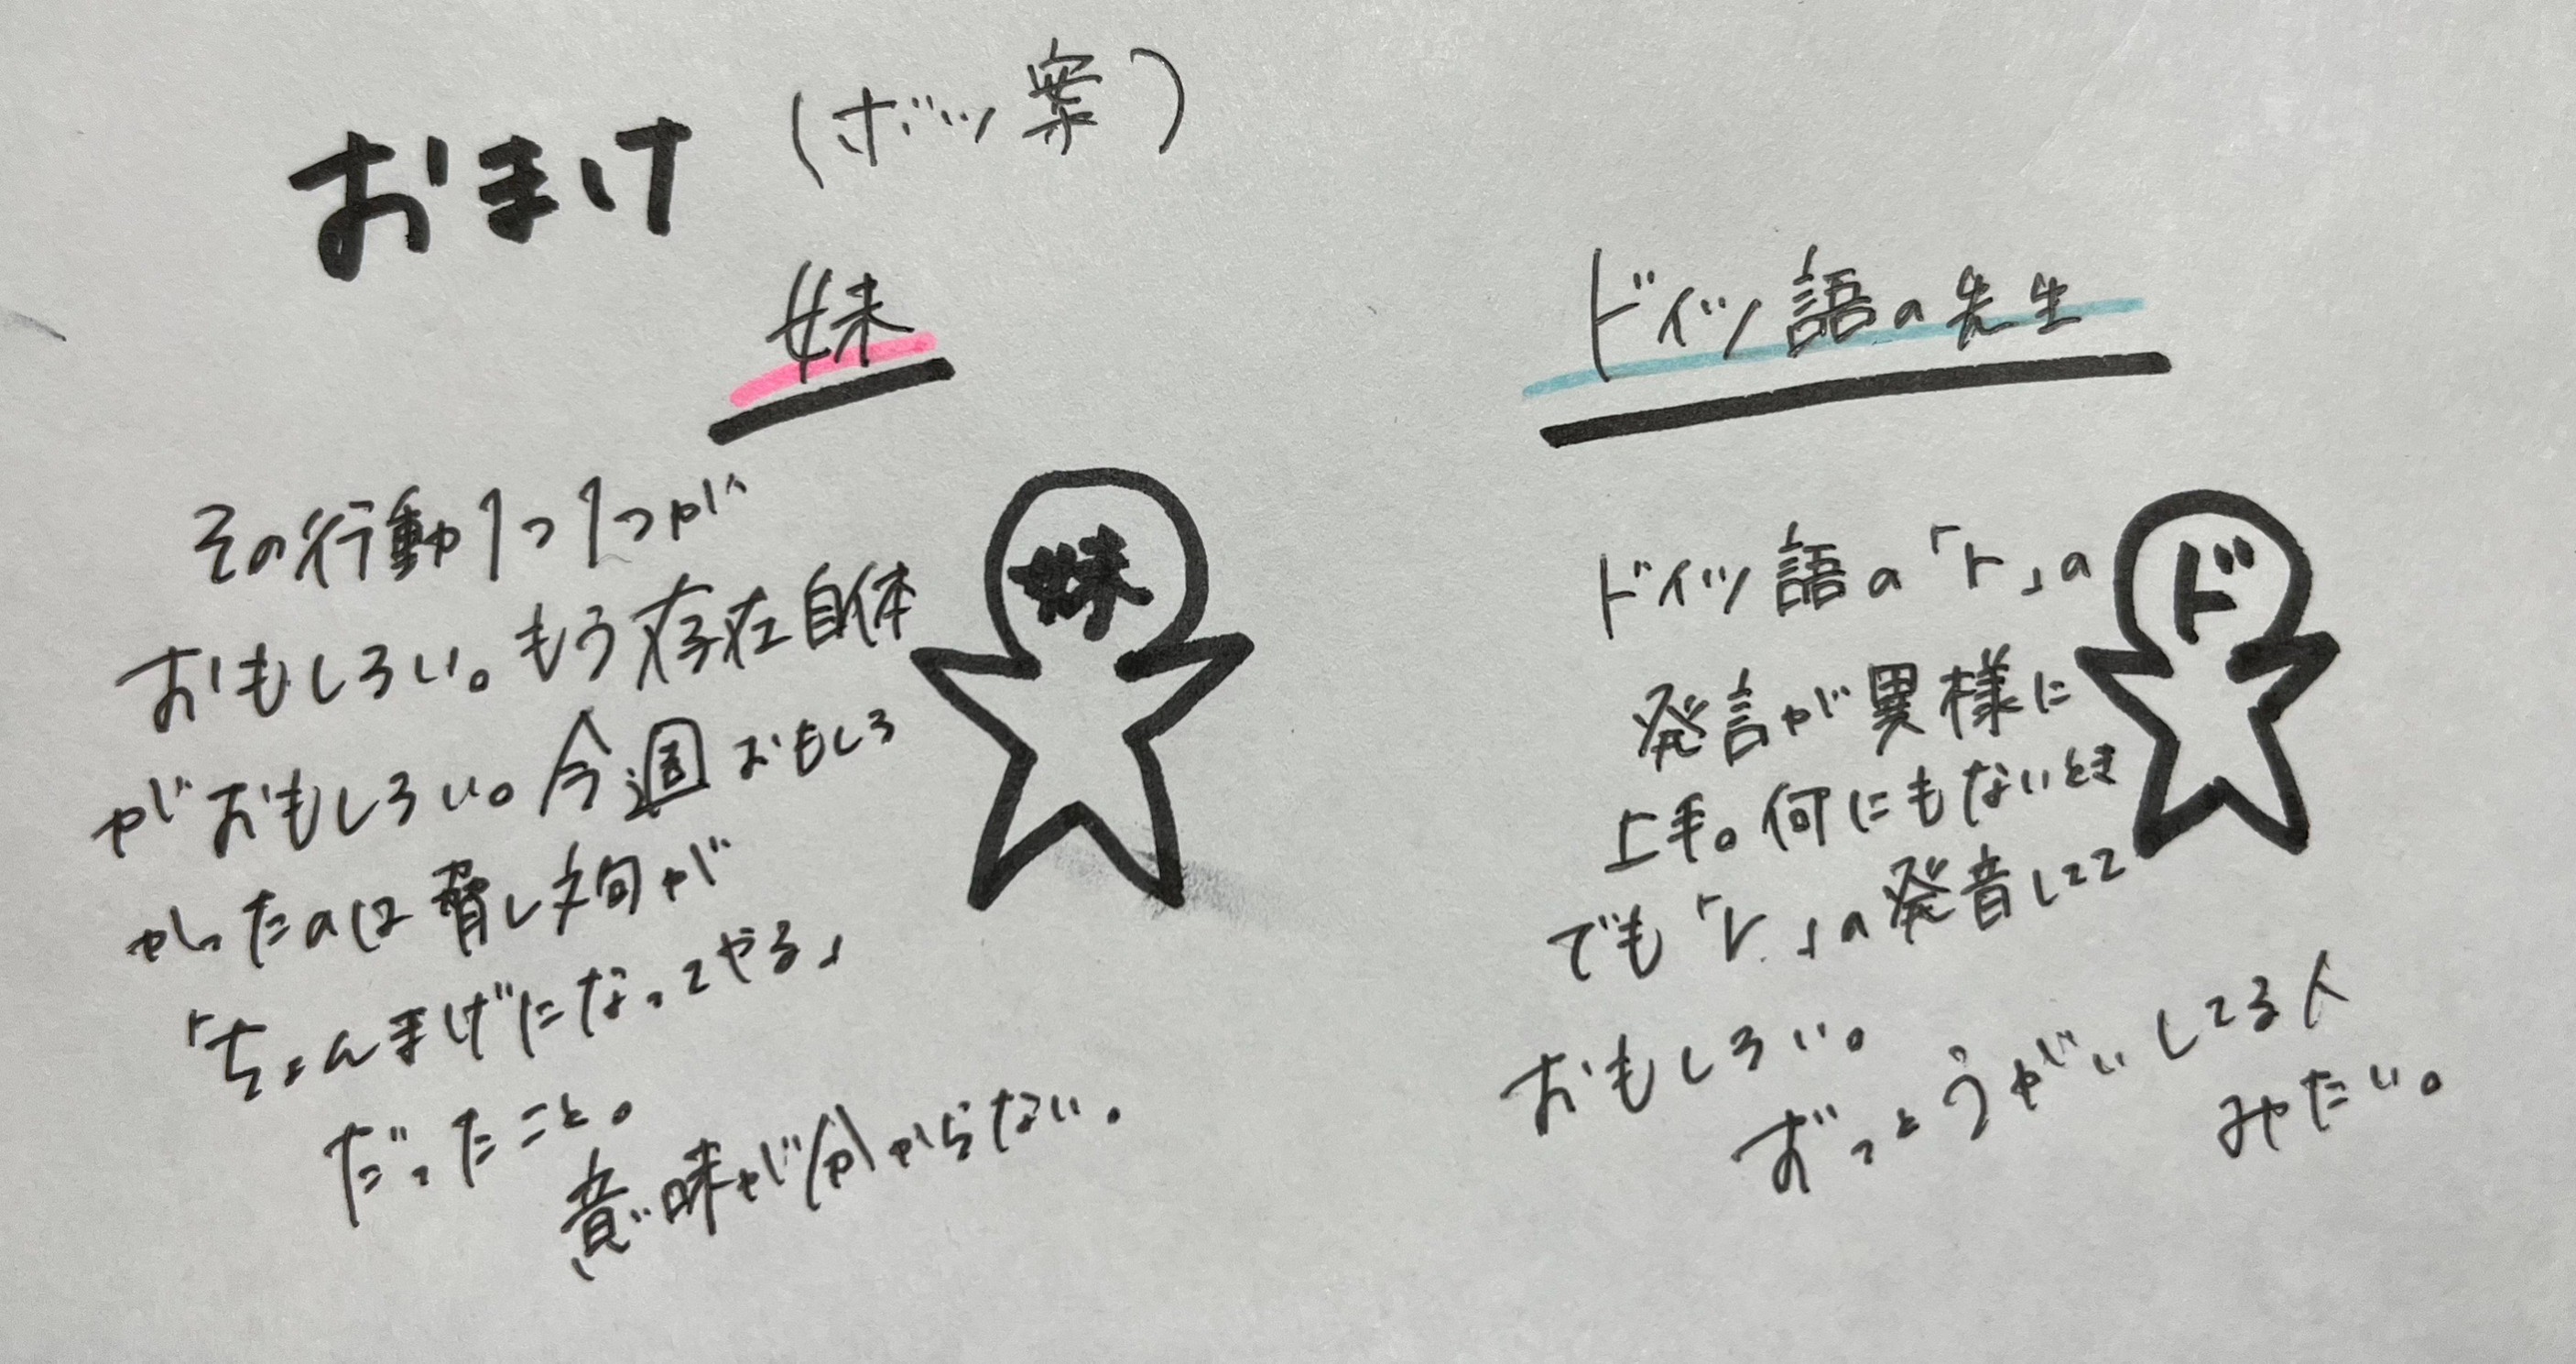 おまけ (ボツ案)
妹
その行動1つ1つが
おもしろい。もう存在自体
がおもしろい。今週おもしろ
かったのは脅し文句が
「ちょんまげになってやる」
だったこと。
意味が分からない。
妹
ドイツ語の先生
ドイツ語の「r」の
発言が異様に
上手。何にもないとき
でも「r」の発音してて
おもしろい。
ずっとうがいしてる人
みたい。
ド